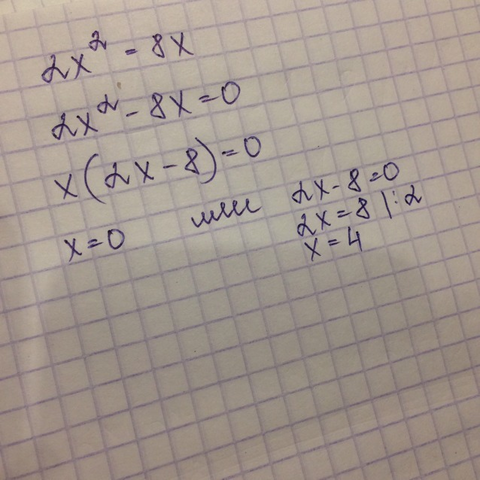 2x² = 8x
2x² - 8x = 0
x(2x - 8) = 0
x = 0 или 2x - 8 = 0
2x = 8 |:2
x = 4